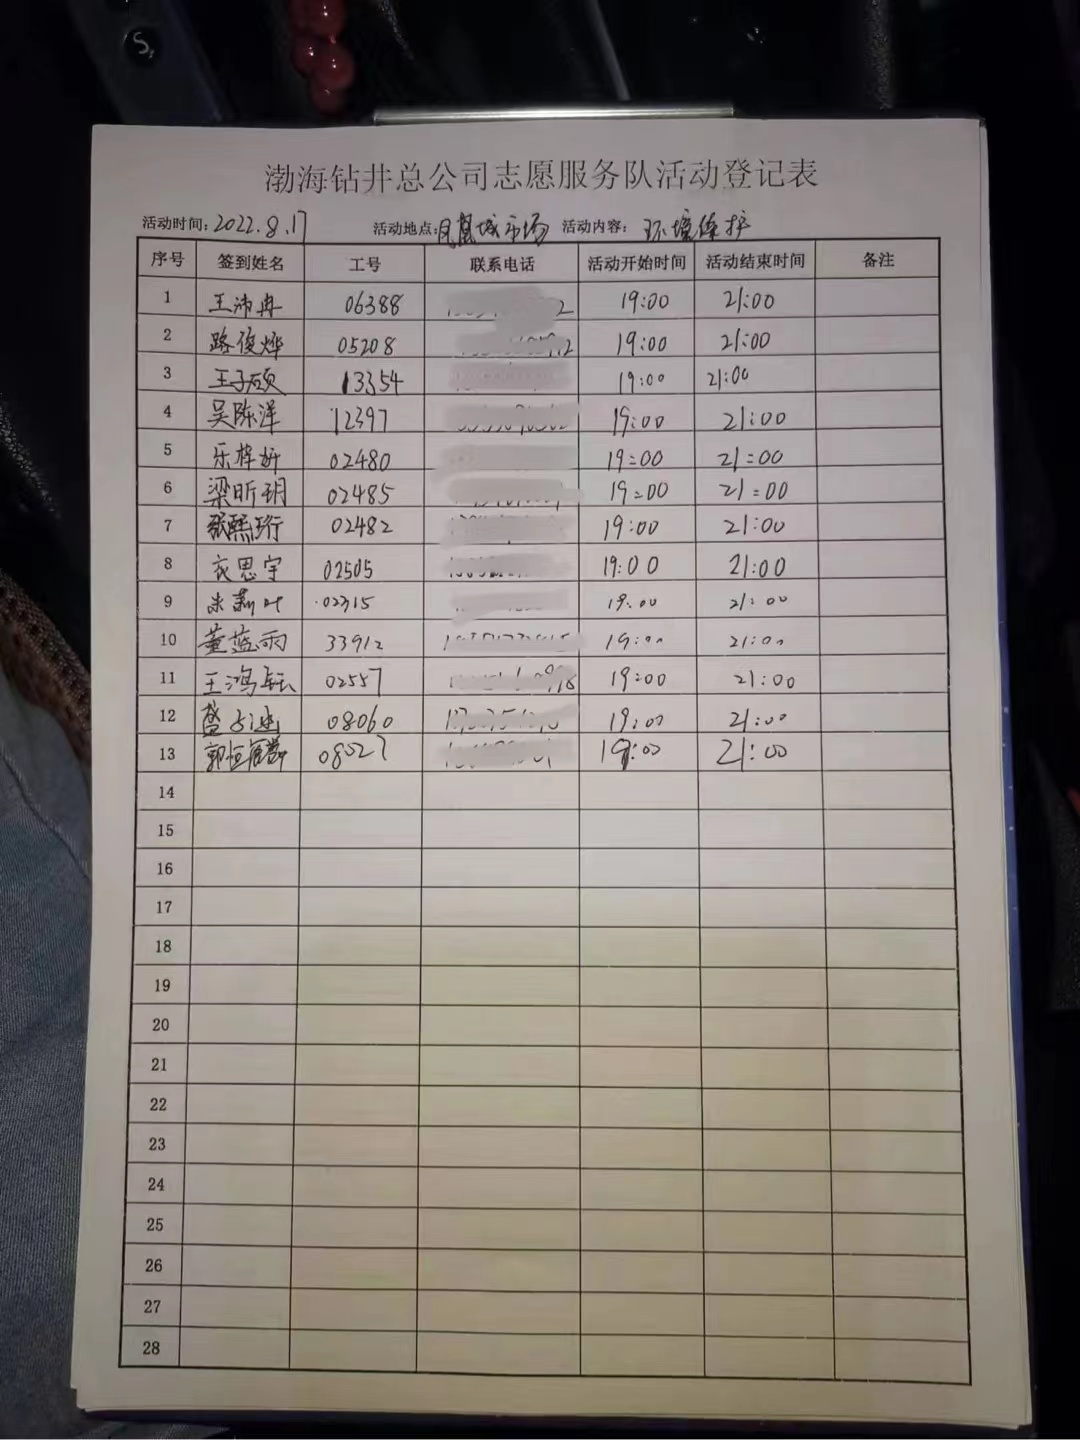 渤海钻井总公司志愿服务队活动登记表
活动时间: 2022.8.17 活动地点: 凤凰城市场 活动内容: 环境保护
序号 签到姓名 工号 联系电话 活动开始时间 活动结束时间 备注
1 王沛冉 06388 19:00 21:00
2 路俊烨 05208 19:00 21:00
3 王子硕 13354 19:00 21:00
4 吴陈洋 12397 19:00 21:00
5 乐梓妍 02480 19:00 21:00
6 梁昕玥 02485 19:00 21:00
7 张熙珩 02482 19:00 21:00
8 衣思宇 02505 19:00 21:00
9 米莉叶 02315 19:00 21:00
10 董蓝雨 33912 19:00 21:00
11 王鸿钰 02557 19:00 21:00
12 08060 19:00 21:00
13 郭恒 08527 19:00 21:00
14
15
16
17
18
19
20
21
22
23
24
25
26
27
28